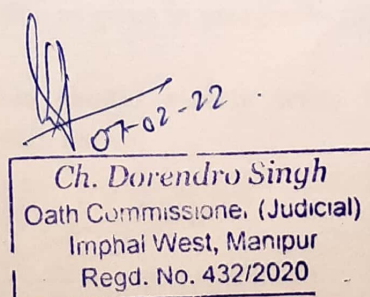 07-02-22
Ch. Dorendro Singh
Oath Commissioner (Judicial)
Imphal West, Manipur
Regd. No. 432/2020